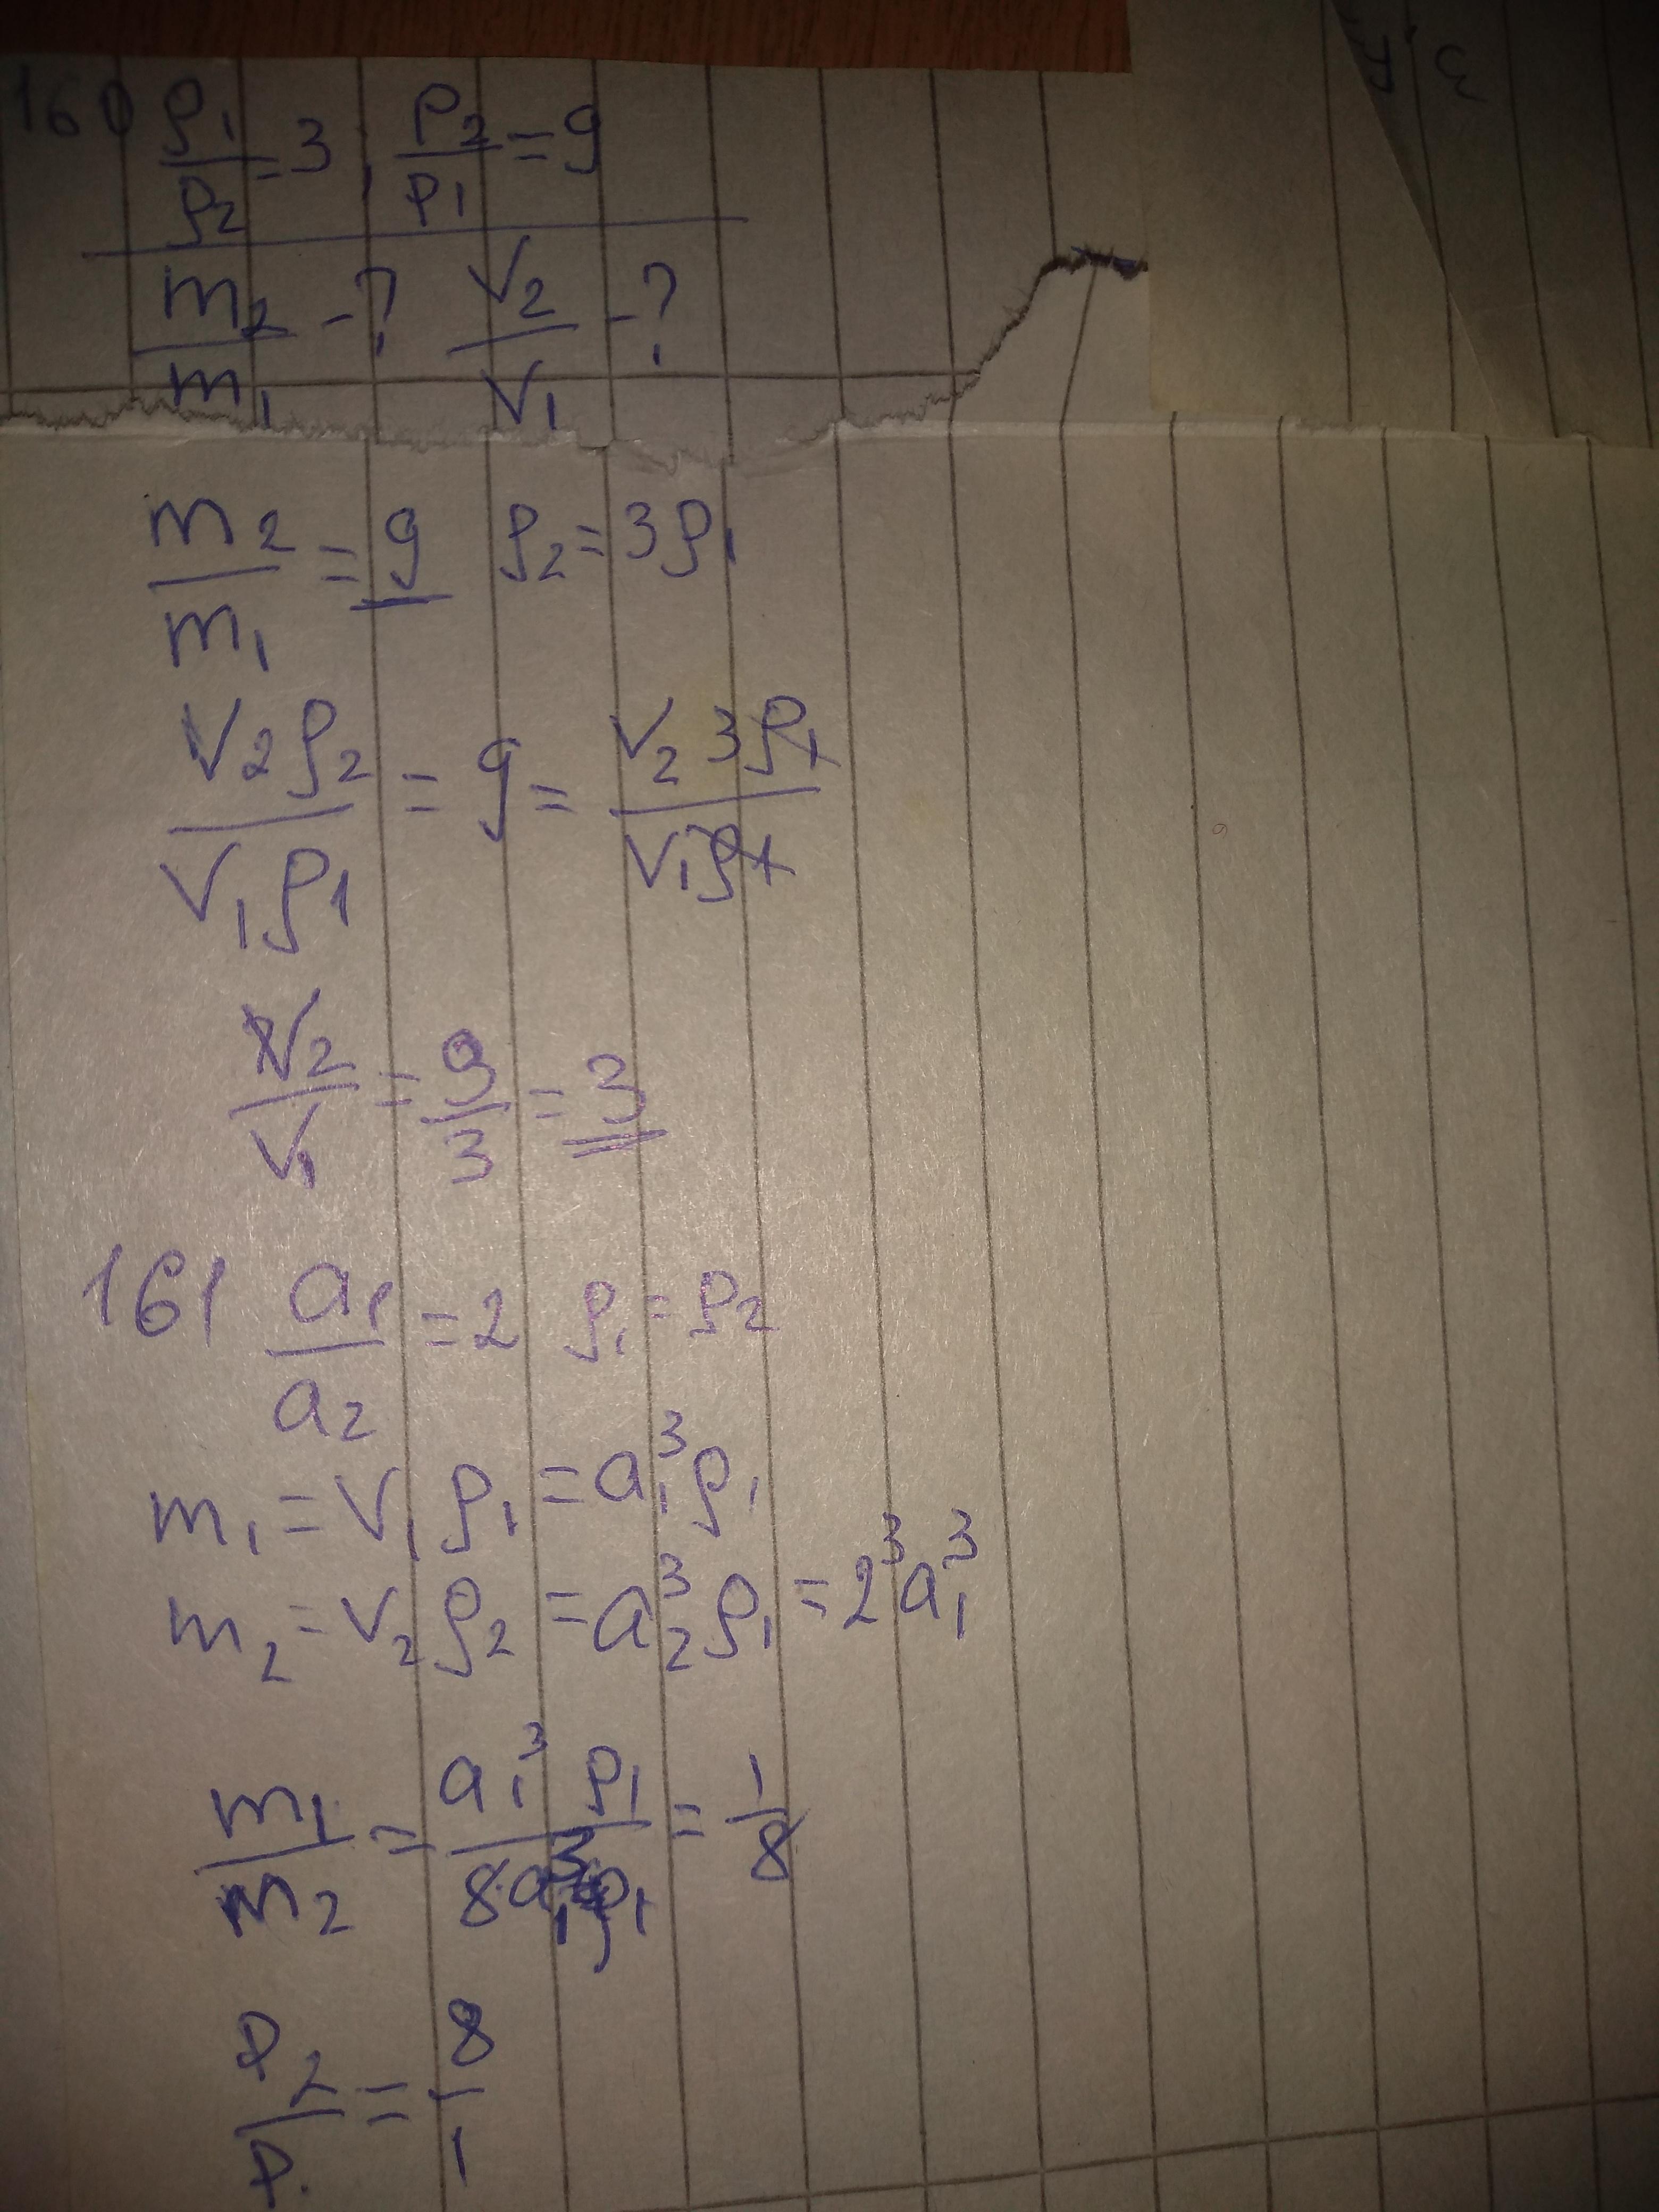 160 ρ1/ρ2 = 3, P2/P1 = 9
m2/m1 - ? V2/V1 - ?
m2/m1 = 9 ρ2 = 3ρ1
V2ρ2/V1ρ1 = 9 = V2 3ρ1/V1ρ1
V2/V1 = 9/3 = 3
161 a1/a2 = 2 ρ1 = ρ2
m1 = V1ρ1 = a1³ρ1
m2 = V2ρ2 = a2³ρ1 = 2³a1³
m1/m2 = a1³ρ1/8a1³ρ1 = 1/8
P2/P1 = 8/1